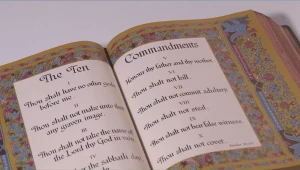 The Ten
I
Thou shalt have no other gods
before me.
II
Thou shalt not make unto thee
any graven image.
III
Thou shalt not take the name of
the Lord thy God in vain.
IV
the sabbath day
Commandments
V
Honour thy father and thy mother.
VI
Thou shalt not kill.
VII
Thou shalt not commit adultery.
VIII
Thou shalt not steal.
IX
Thou shalt not bear false witness.
X
Thou shalt not covet.